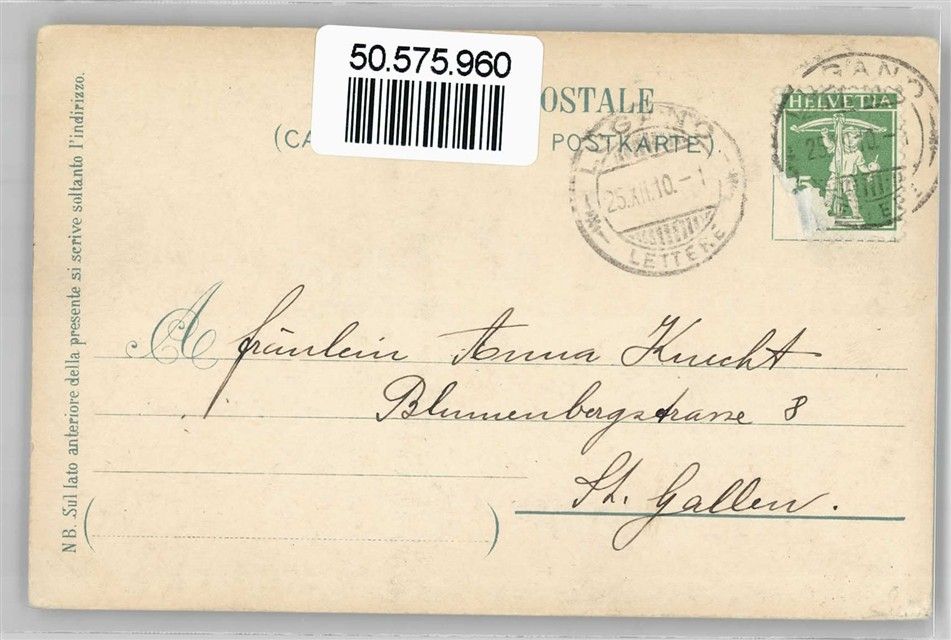 50.575.960
OSTALE
(CA POSTKARTE).
HELVETIA
LUGANO
25.XII.10.-1
LETTERE
A Fräulein Anna Knecht
Blumenbergstrasse 8
St. Gallen.
NB. Sul lato anteriore della presente si scrive soltanto l'indirizzo.